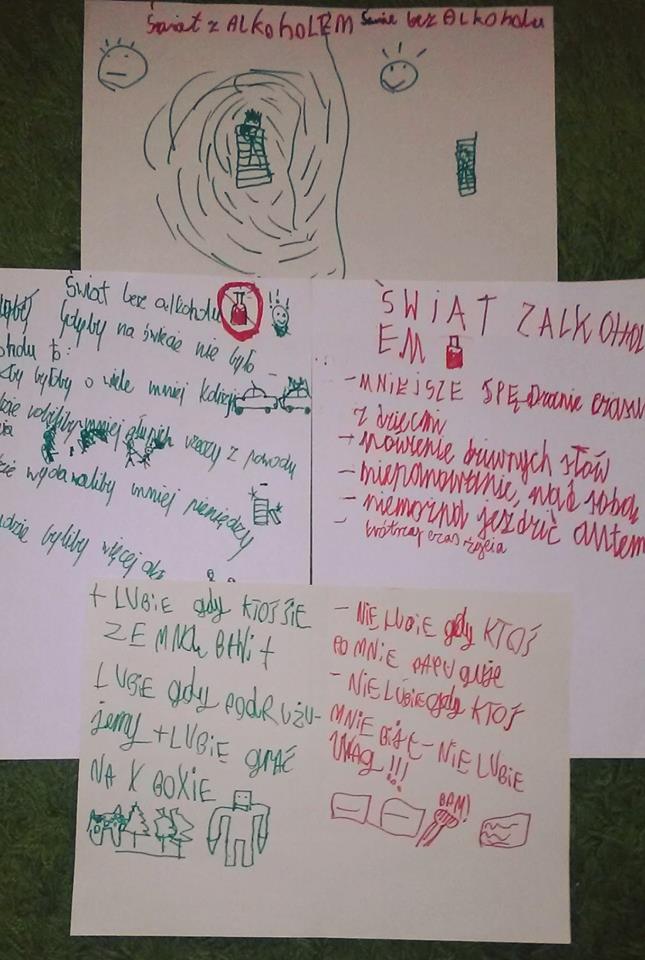 Świat z ALKoholEM Świat bez Alkoholu
Świat bez alkoholu
Gdyby na świecie nie było
to :
byłoby o wiele mniej kolizji
robiliby mniej głupich rzeczy z powodu
wydawaliby mniej pieniędzy
byliby więcej
ŚWiAT ZALKOHOL
EM
-MNIEJSZE SPĘDzanie czasu
z dziećmi
- mówienie dziwnych słów
- niepanowanie, nad sobą
- niemożna jeździć autem
- krótrzy czas życia
+ LUBiE gdy KTOŚ SiE
ZE MNĄ BAWi +
LUBiE gdy PODRUŻU-
jemy + LUBiE grać
NA X BOXiE
- NiE LUBiE gdy KTOŚ
PO MNiE PAPUguje
- NiE LUBiE gdy KTOŚ
MNiE BiJE - NiE LUBiE
UWAG!!!
BAM!